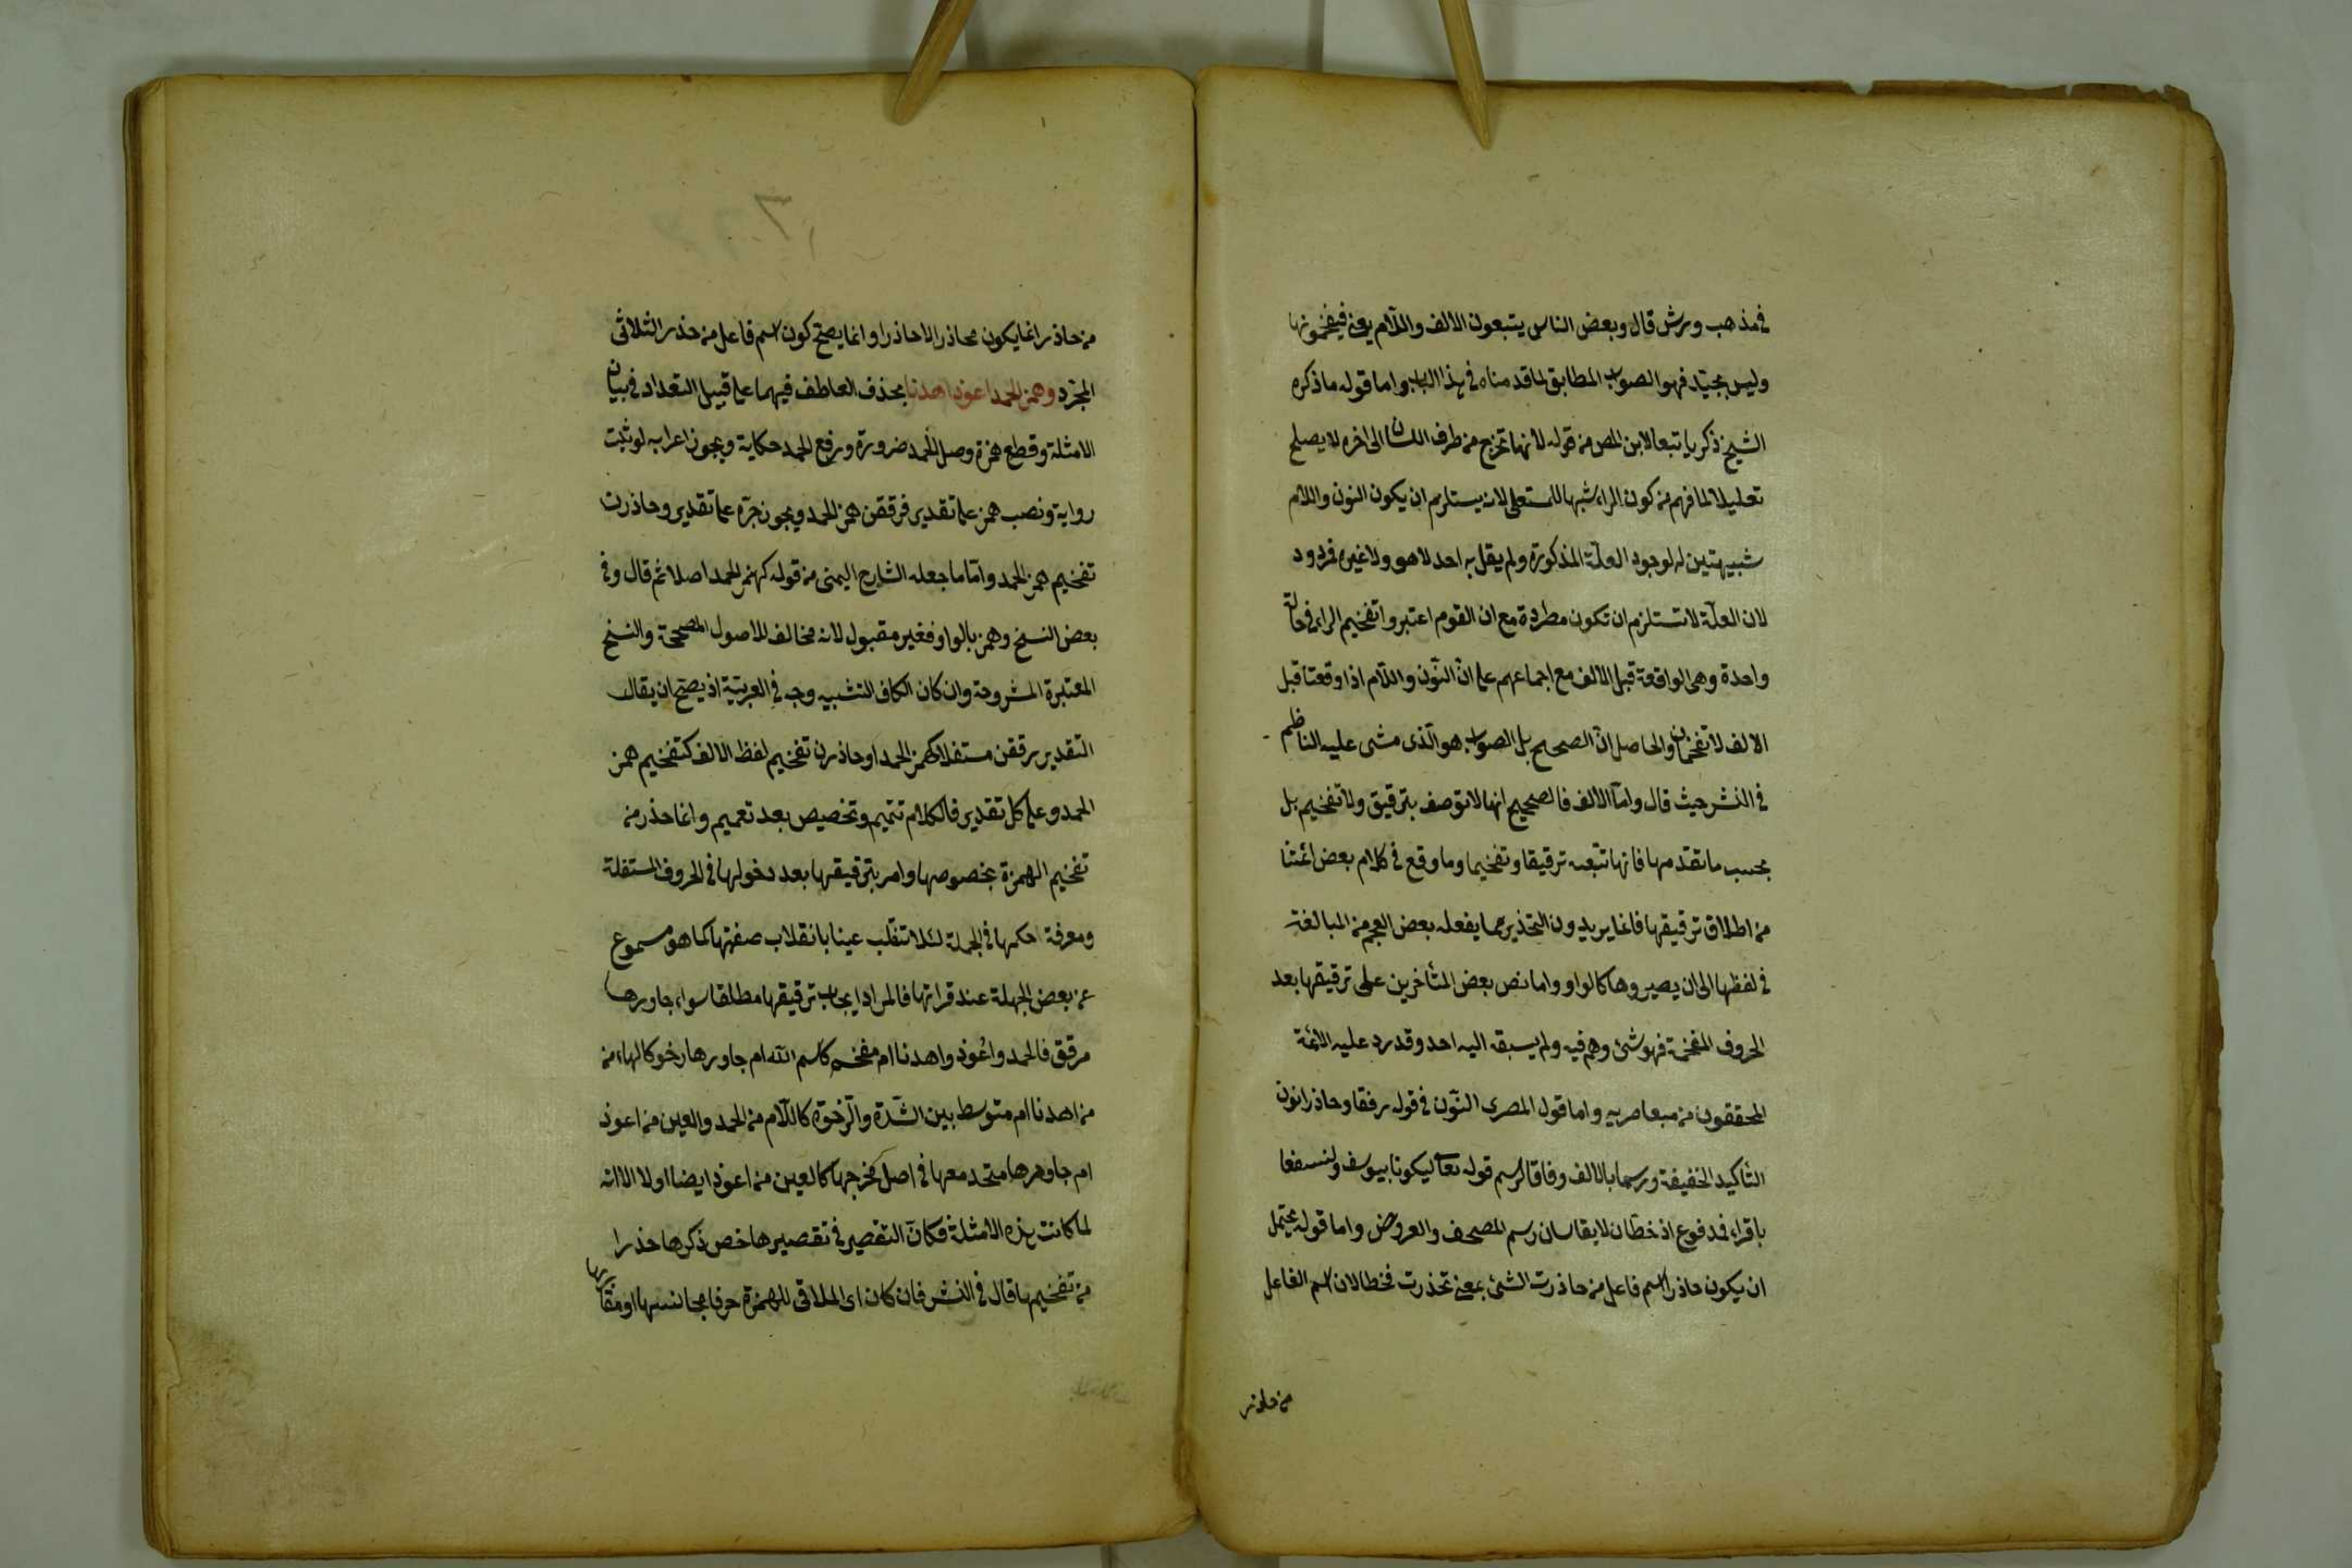 في مذهب ورش قال وبعض الناس يتبعون الالف واللام يعني فيفخمونها
وليس بجيد فهو الصواب المطابق لما قدمناه في هذا الباب واما قوله ما ذكره
الشيخ زكريا تبعا لابن المص من قوله لانها تخرج من طرف اللسان الى اخره لا يصلح
تعليلا لما فهم من كون الراء شبها للمستعلي لانه يستلزم ان يكون النون واللام
شبيهتين له لوجود العلة المذكورة ولم يقل به احد لا هو ولا غيره فردود
لان العلة لا تستلزم ان تكون مطردة مع ان القوم اعتبروا تفخيم الراء في حالة
واحدة وهى الواقعة قبل الالف مع اجماعهم على ان النون واللام اذا وقعتا قبل
الالف لا تفخمان والحاصل ان الصحيح بل الصواب هو الذى مشى عليه الناظم
في النشر حيث قال واما الالف فالصحيح انها لا توصف بترقيق ولا تفخيم بل
بحسب ما تقدمها فانها تتبعه ترقيقا وتفخيما وما وقع في كلام بعض ائمتنا
من اطلاق ترقيقها فانما يريدون التحذير مما يفعله بعض العجم من المبالغة
في لفظها الى ان يصيروها كالواو واما نص بعض المتأخرين على ترقيقها بعد
الحروف المفخمة فهو شئ وهم فيه ولم يسبقه اليه احد وقد رد عليه الائمة
المحققون من معاصريه واما قول المصرى النون في قوله رققا وحاذرا نون
التأكيد الخفيفة ورسما بالالف وفاقا لرسم قوله تعالى ليكونا بيوسف ولنسفعا
باقراء فمدفوع اذ خطان لا يقاسان رسم المصحف والعروض واما قوله يحتمل
ان يكون حاذرا اسم فاعل من حاذرت الشئ بمعنى تحذرت فخطا لان اسم الفاعل
من حاذر
من حاذر انما يكون محاذر الا حاذرا وانما يصح كون اسم فاعل من حذر الثلاثى
المجرد وهمز الحمد اعوذ اهدنا بحذف العاطف فيهما على قبيل التعداد في بيان
الامثلة وقطع همزة وصل الحمد ضرورة ورفع الحمد حكاية ويجوز اعرابه لو ثبت
رواية ونصب همز على تقدير فرققن همز الحمد ويجوز جره على تقدير وحاذرن
تفخيم همز الحمد واما ما جعله الشارح اليمنى من قوله كهمز الحمد اصلا ثم قال وفي
بعض النسخ وهمز بالواو فغير مقبول لانه مخالف للاصول المصححة والنسخ
المعتبرة المشروحة وان كان الكاف التشبيه وجه في العربية اذ يصح ان يقال
التقدير رققن مستفلا كهمز الحمد او حاذرن تفخيم لفظ الالف كتفخيم همز
الحمد وعلى كل تقدير فالكلام تتميم وتخصيص بعد تعميم وانما حذر من
تفخيم الهمزة بخصوصها وامر بترقيقها بعد دخولها في الحروف المستفلة
ومعرفة حكمها في الجملة لئلا تنقلب عينا بانقلاب صفتها كما هو مسموع
عن بعض الجهلة عند قراتها فالمراد ايجاب ترقيقها مطلقا سواء جاورها
مرقق فالحمد واعوذ واهدنا ام مفخم كاسم الله ام جاورها رخو كالهاء من
من اهدنا ام متوسط بين الشدة والرخوة كاللام من الحمد والعين من اعوذ
ام جاورها متحد معها في اصل مخرجها كالعين من اعوذ ايضا اولا الا انه
لما كانت هذه الامثلة فكان التقصير في تقصيرها خص ذكرها حذرا
من تفخيمها قال في النشر فان كان اى الملاقى للهمزة حرفا مجانسها او مقاربها